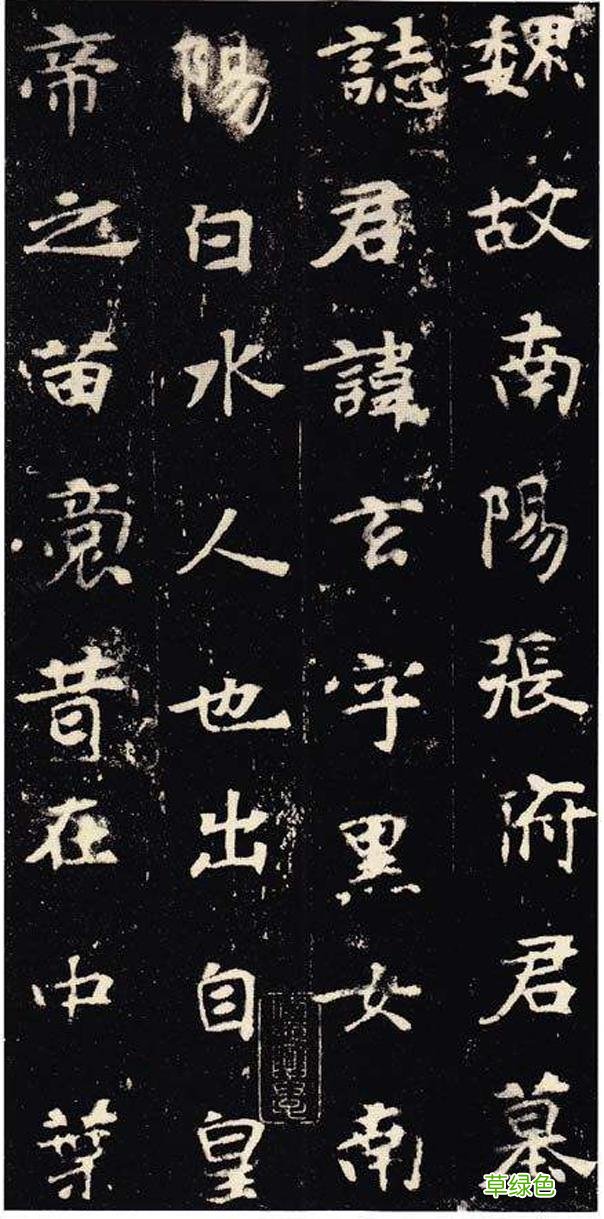 魏故南陽張府君墓
誌君諱玄字黑女南
陽白水人也出自皇
帝之苗裔昔在中葉
草绿色